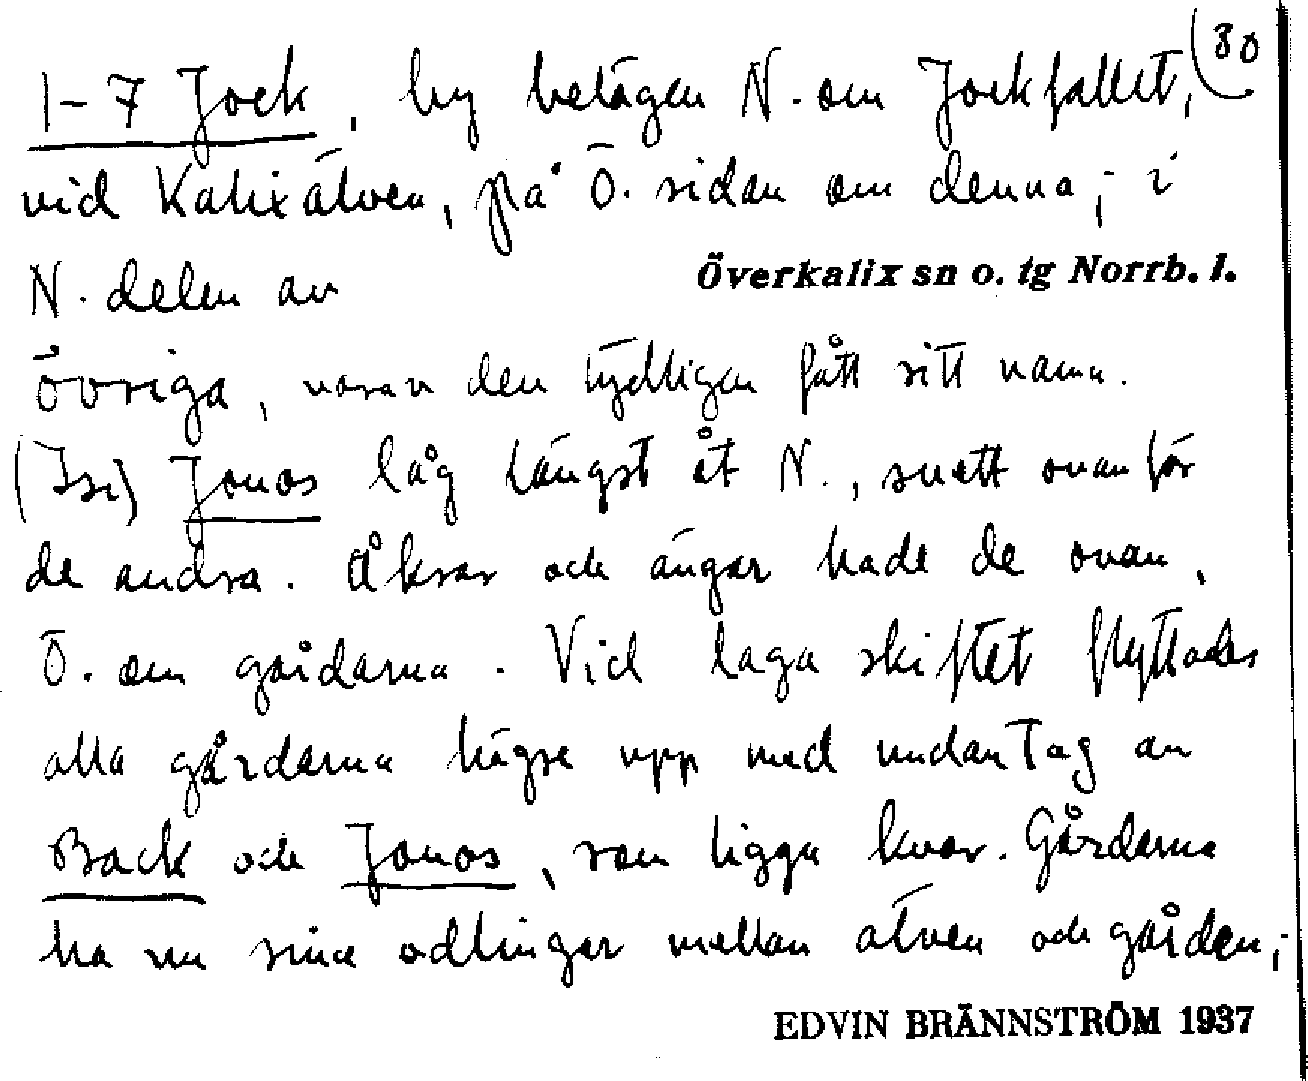 (80
1-7 Jock, by belägen N. om Jockfallet,
vid Kalixälven, på Ö. sidan om denna; i
N. delen av Överkalix sn o. tg Norrb. l.
övriga, varav den tydligen fått sitt namn.
Jonos låg längst åt N., snett ovanför
de andra. Åkrar och ängar hade de ovan,
Ö. om gårdarna. Vid laga skiftet flyttades
alla gårdarna högre upp med undantag av
Back och Jonos, som ligga kvar. Gårdarna
ha nu sina odlingar mellan älven och gården;
EDVIN BRÄNNSTRÖM 1937